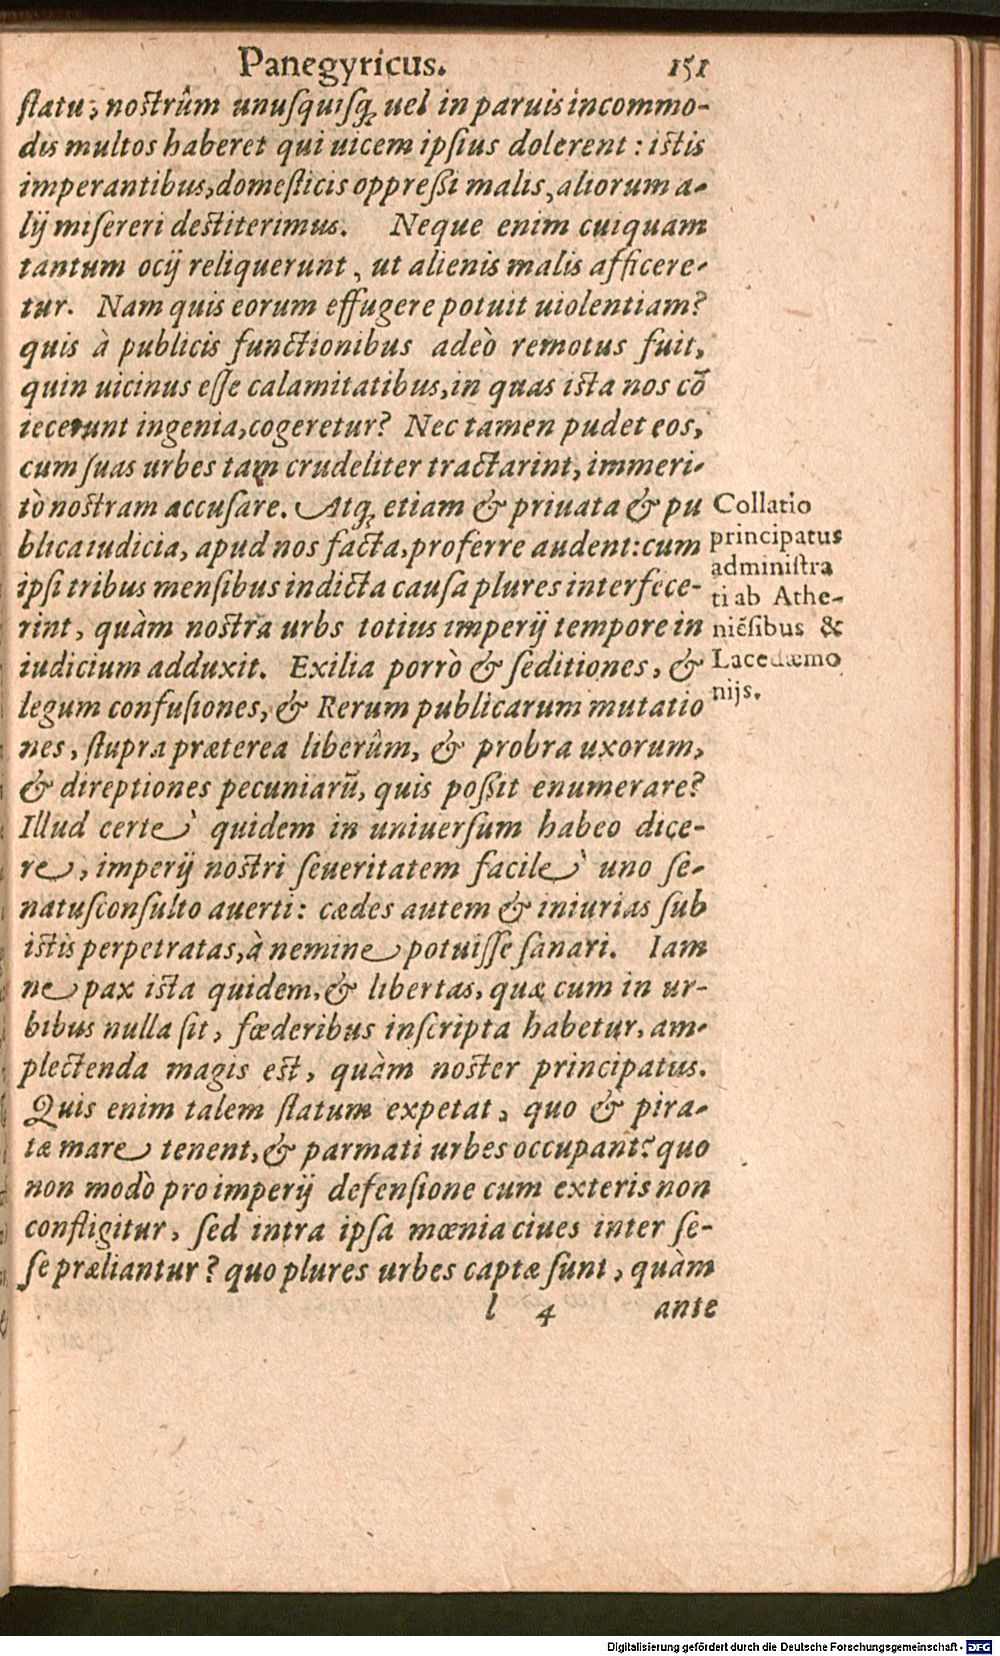 Panegyricus. 151
statu, nostrûm unusquisq; uel in paruis incommo-
dis multos haberet qui uicem ipsius dolerent: istis
imperantibus, domesticis oppressi malis, aliorum a-
lij misereri destiterimus. Neque enim cuiquam
tantum ocij reliquerunt, ut alienis malis afficere-
tur. Nam quis eorum effugere potuit uiolentiam?
quis à publicis functionibus adeò remotus fuit,
quin uicinus esse calamitatibus, in quas ista nos cō
iecerunt ingenia, cogeretur? Nec tamen pudet eos,
cum suas urbes tam crudeliter tractarint, immeri-
tò nostram accusare. Atq; etiam & priuata & pu
blica iudicia, apud nos facta, proferre audent: cum
ipsi tribus mensibus indicta causa plures interfece-
rint, quàm nostra urbs totius imperij tempore in
iudicium adduxit. Exilia porrò & seditiones, &
legum confusiones, & Rerum publicarum mutatio
nes, stupra præterea liberûm, & probra uxorum,
& direptiones pecuniarū, quis possit enumerare?
Illud certè quidem in uniuersum habeo dice-
re, imperij nostri seueritatem facilè uno se-
natusconsulto auerti: cædes autem & iniurias sub
istis perpetratas, à nemine potuisse sanari. Iam
ne pax ista quidem, & libertas, quæ cum in ur-
bibus nulla sit, fœderibus inscripta habetur, am-
plectenda magis est, quàm noster principatus.
Quis enim talem statum expetat, quo & pira-
tæ mare tenent, & parmati urbes occupant? quo
non modò pro imperij defensione cum exteris non
confligitur, sed intra ipsa mœnia ciues inter se-
se præliantur? quo plures urbes captæ sunt, quàm
l 4 ante
Collatio
principatus
administra
ti ab Athe-
niēsibus &
Lacedæmo
nijs.
Digitalisierung gefördert durch die Deutsche Forschungsgemeinschaft - DFG